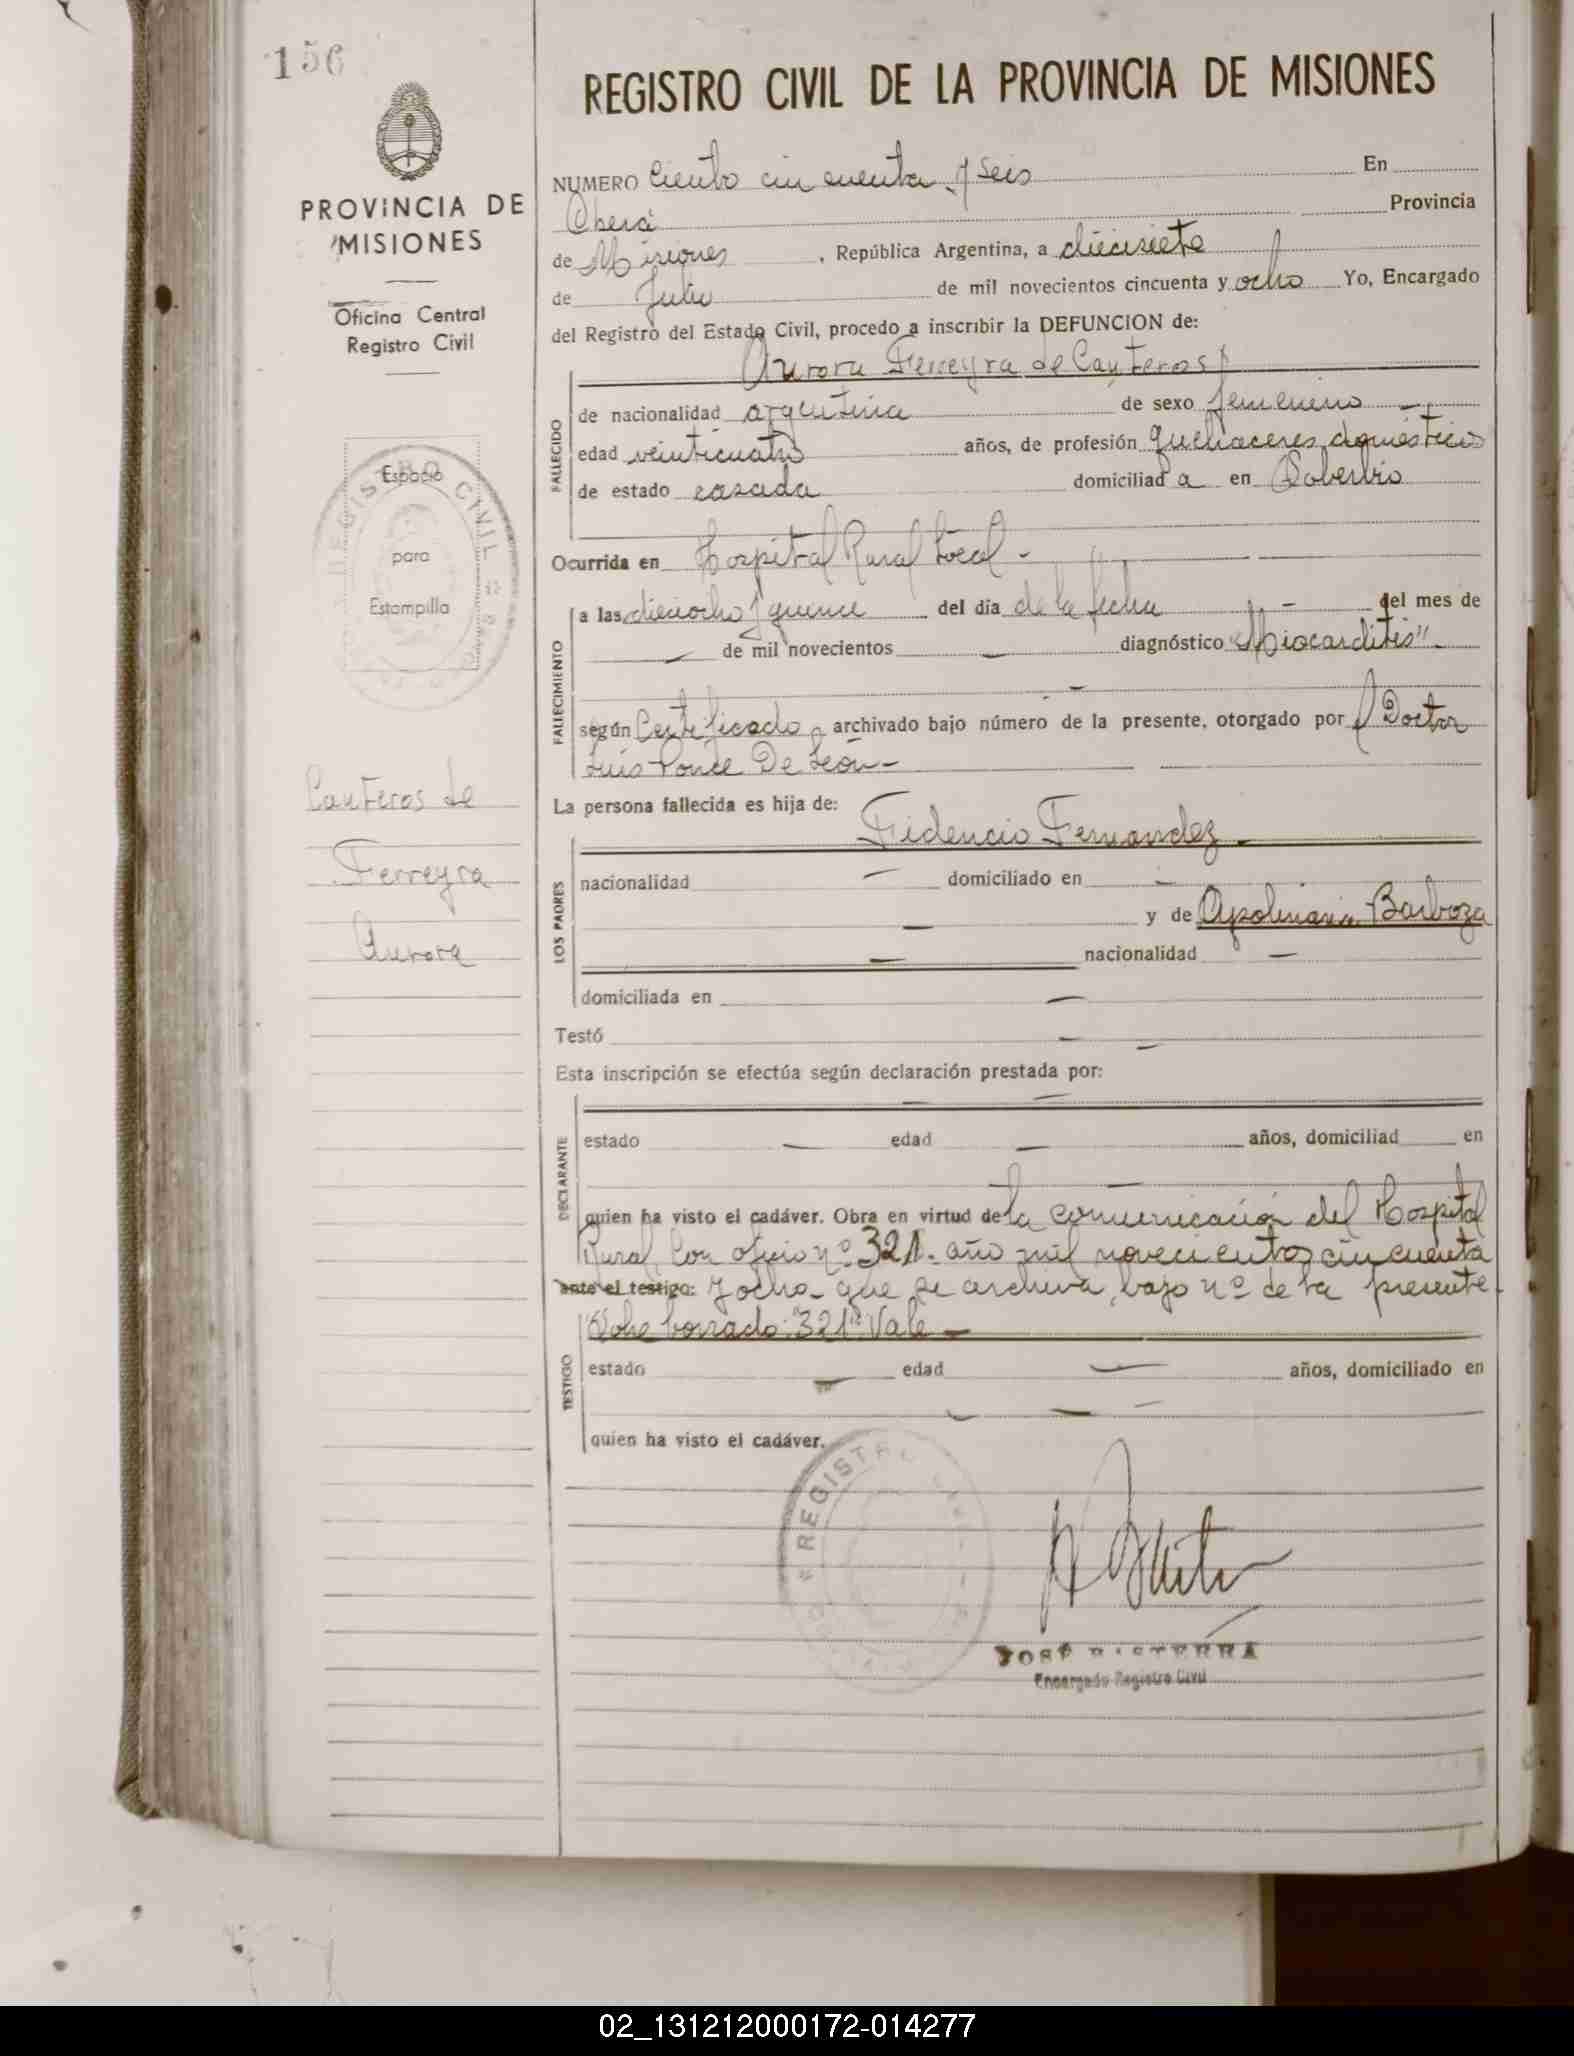 156
PROVINCIA DE
MISIONES
Oficina Central
Registro Civil
Espacio
para
Estampilla
REGISTRO CIVIL
Canteros de
Ferreyra
Aurora
REGISTRO CIVIL DE LA PROVINCIA DE MISIONES
NUMERO Ciento cincuenta y seis En
Oberá Provincia
de Misiones, República Argentina, a diecisiete
de Julio de mil novecientos cincuenta y ocho Yo, Encargado
del Registro del Estado Civil, procedo a inscribir la DEFUNCION de:
Aurora Ferreyra de Canteros
FALLECIDO
de nacionalidad argentina de sexo femenino
edad veinticuatro años, de profesión quehaceres domésticos
de estado casada domiciliada en Soberbio
Ocurrida en Hospital Rural Local -
FALLECIMIENTO
a las dieciocho y quince del día de la fecha - del mes de
- de mil novecientos - diagnóstico "Miocarditis" -
-
según Certificado archivado bajo número de la presente, otorgado por Doctor
Luis Ponce De León -
La persona fallecida es hija de:
Fidencio Fernandez -
LOS PADRES
nacionalidad - domiciliado en -
- y de Apolinaria Barboza
- nacionalidad -
domiciliada en -
Testó - -
Esta inscripción se efectúa según declaración prestada por:
- -
DECLARANTE
estado - edad - años, domiciliad en
-
quien ha visto el cadáver. Obra en virtud de la comunicación del Hospital
Rural, con oficio nº 321. año mil novecientos cincuenta
ante el testigo: y ocho - que se archiva bajo nº de la presente -
Sobe borrado: 321": Vale -
TESTIGO
estado - edad - años, domiciliado en
- - -
quien ha visto el cadáver.
REGISTRO
JOSÉ
Encargado Registro Civil
02_131212000172-014277